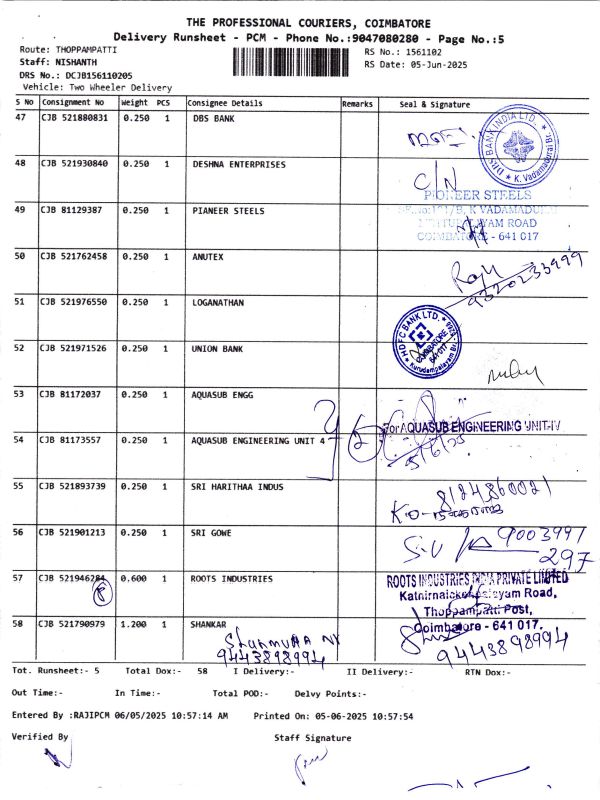 THE PROFESSIONAL COURIERS, COIMBATORE
Delivery Runsheet - PCM - Phone No.:9047080280 - Page No.:5
Route: THOPPAMPATTI
RS No.: 1561102
Staff: NISHANTH
RS Date: 05-Jun-2025
DRS No.: DCJB156110205
Vehicle: Two Wheeler Delivery
S No Consignment No Weight PCS Consignee Details Remarks Seal & Signature
47 CJB 521880831 0.250 1 DBS BANK
DBS BANK INDIA LTD. ★ K. Vadamadurai Br. ★
48 CJB 521930840 0.250 1 DESHNA ENTERPRISES
C/N
PIONEER STEELS
49 CJB 81129387 0.250 1 PIANEER STEELS
K VADAMADURAI
ROAD
COIMBATORE - 641 017
50 CJB 521762458 0.250 1 ANUTEX
Raju
9320233999
51 CJB 521976550 0.250 1 LOGANATHAN
HDFC BANK LTD. ★ Kurudampalayam Br. ★
COIMBATORE 641 017
52 CJB 521971526 0.250 1 UNION BANK
53 CJB 81172037 0.250 1 AQUASUB ENGG
For AQUASUB ENGINEERING UNIT-IV
54 CJB 81173557 0.250 1 AQUASUB ENGINEERING UNIT 4
2
5/6/25
55 CJB 521893739 0.250 1 SRI HARITHAA INDUS
8124860021
56 CJB 521901213 0.250 1 SRI GOWE
S.V
9003991
297
57 CJB 521946284 0.600 1 ROOTS INDUSTRIES
8
ROOTS INDUSTRIES INDIA PRIVATE LIMITED
Road,
Thoppampatti Post,
Coimbatore - 641 017.
58 CJB 521790979 1.200 1 SHANKAR
9443898994
9443898994
Tot. Runsheet:- 5 Total Dox:- 58 I Delivery:- II Delivery:- RTN Dox:-
Out Time:- In Time:- Total POD:- Delvy Points:-
Entered By :RAJIPCM 06/05/2025 10:57:14 AM Printed On: 05-06-2025 10:57:54
Verified By Staff Signature